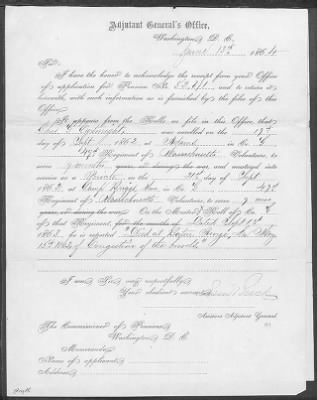 Adjutant General's Office,
Washington, D. C.
June 13th, 1864
Sir:
I have the honor to acknowledge the receipt from your Office
of application for Pension No. and to return it
herewith, with such information as is furnished by the files of this
Office.
It appears from the Rolls on file in this Office, that
was enrolled on the 17th
day of Sept, 1862, at in Co.
47th Regiment of Massachusetts Volunteers, to serve
9 months years, or during the war, and mustered into
service as a Private on the 21st day of Sept,
1862, at Camp Meigs, in Co. 47th
Regiment of Massachusetts Volunteers, to serve 9 mos
years, or during the war. On the Muster Roll of Co.
of that Regiment, for the
1862, he is reported "Died at La. May
15th 1863 of Congestion of the bowels"
I am, Sir, very respectfully,
Your obedient servant,
Assistant Adjutant General.
The Commissioner of Pensions,
Washington, D. C.
Memoranda:
Name of applicant,
Address,